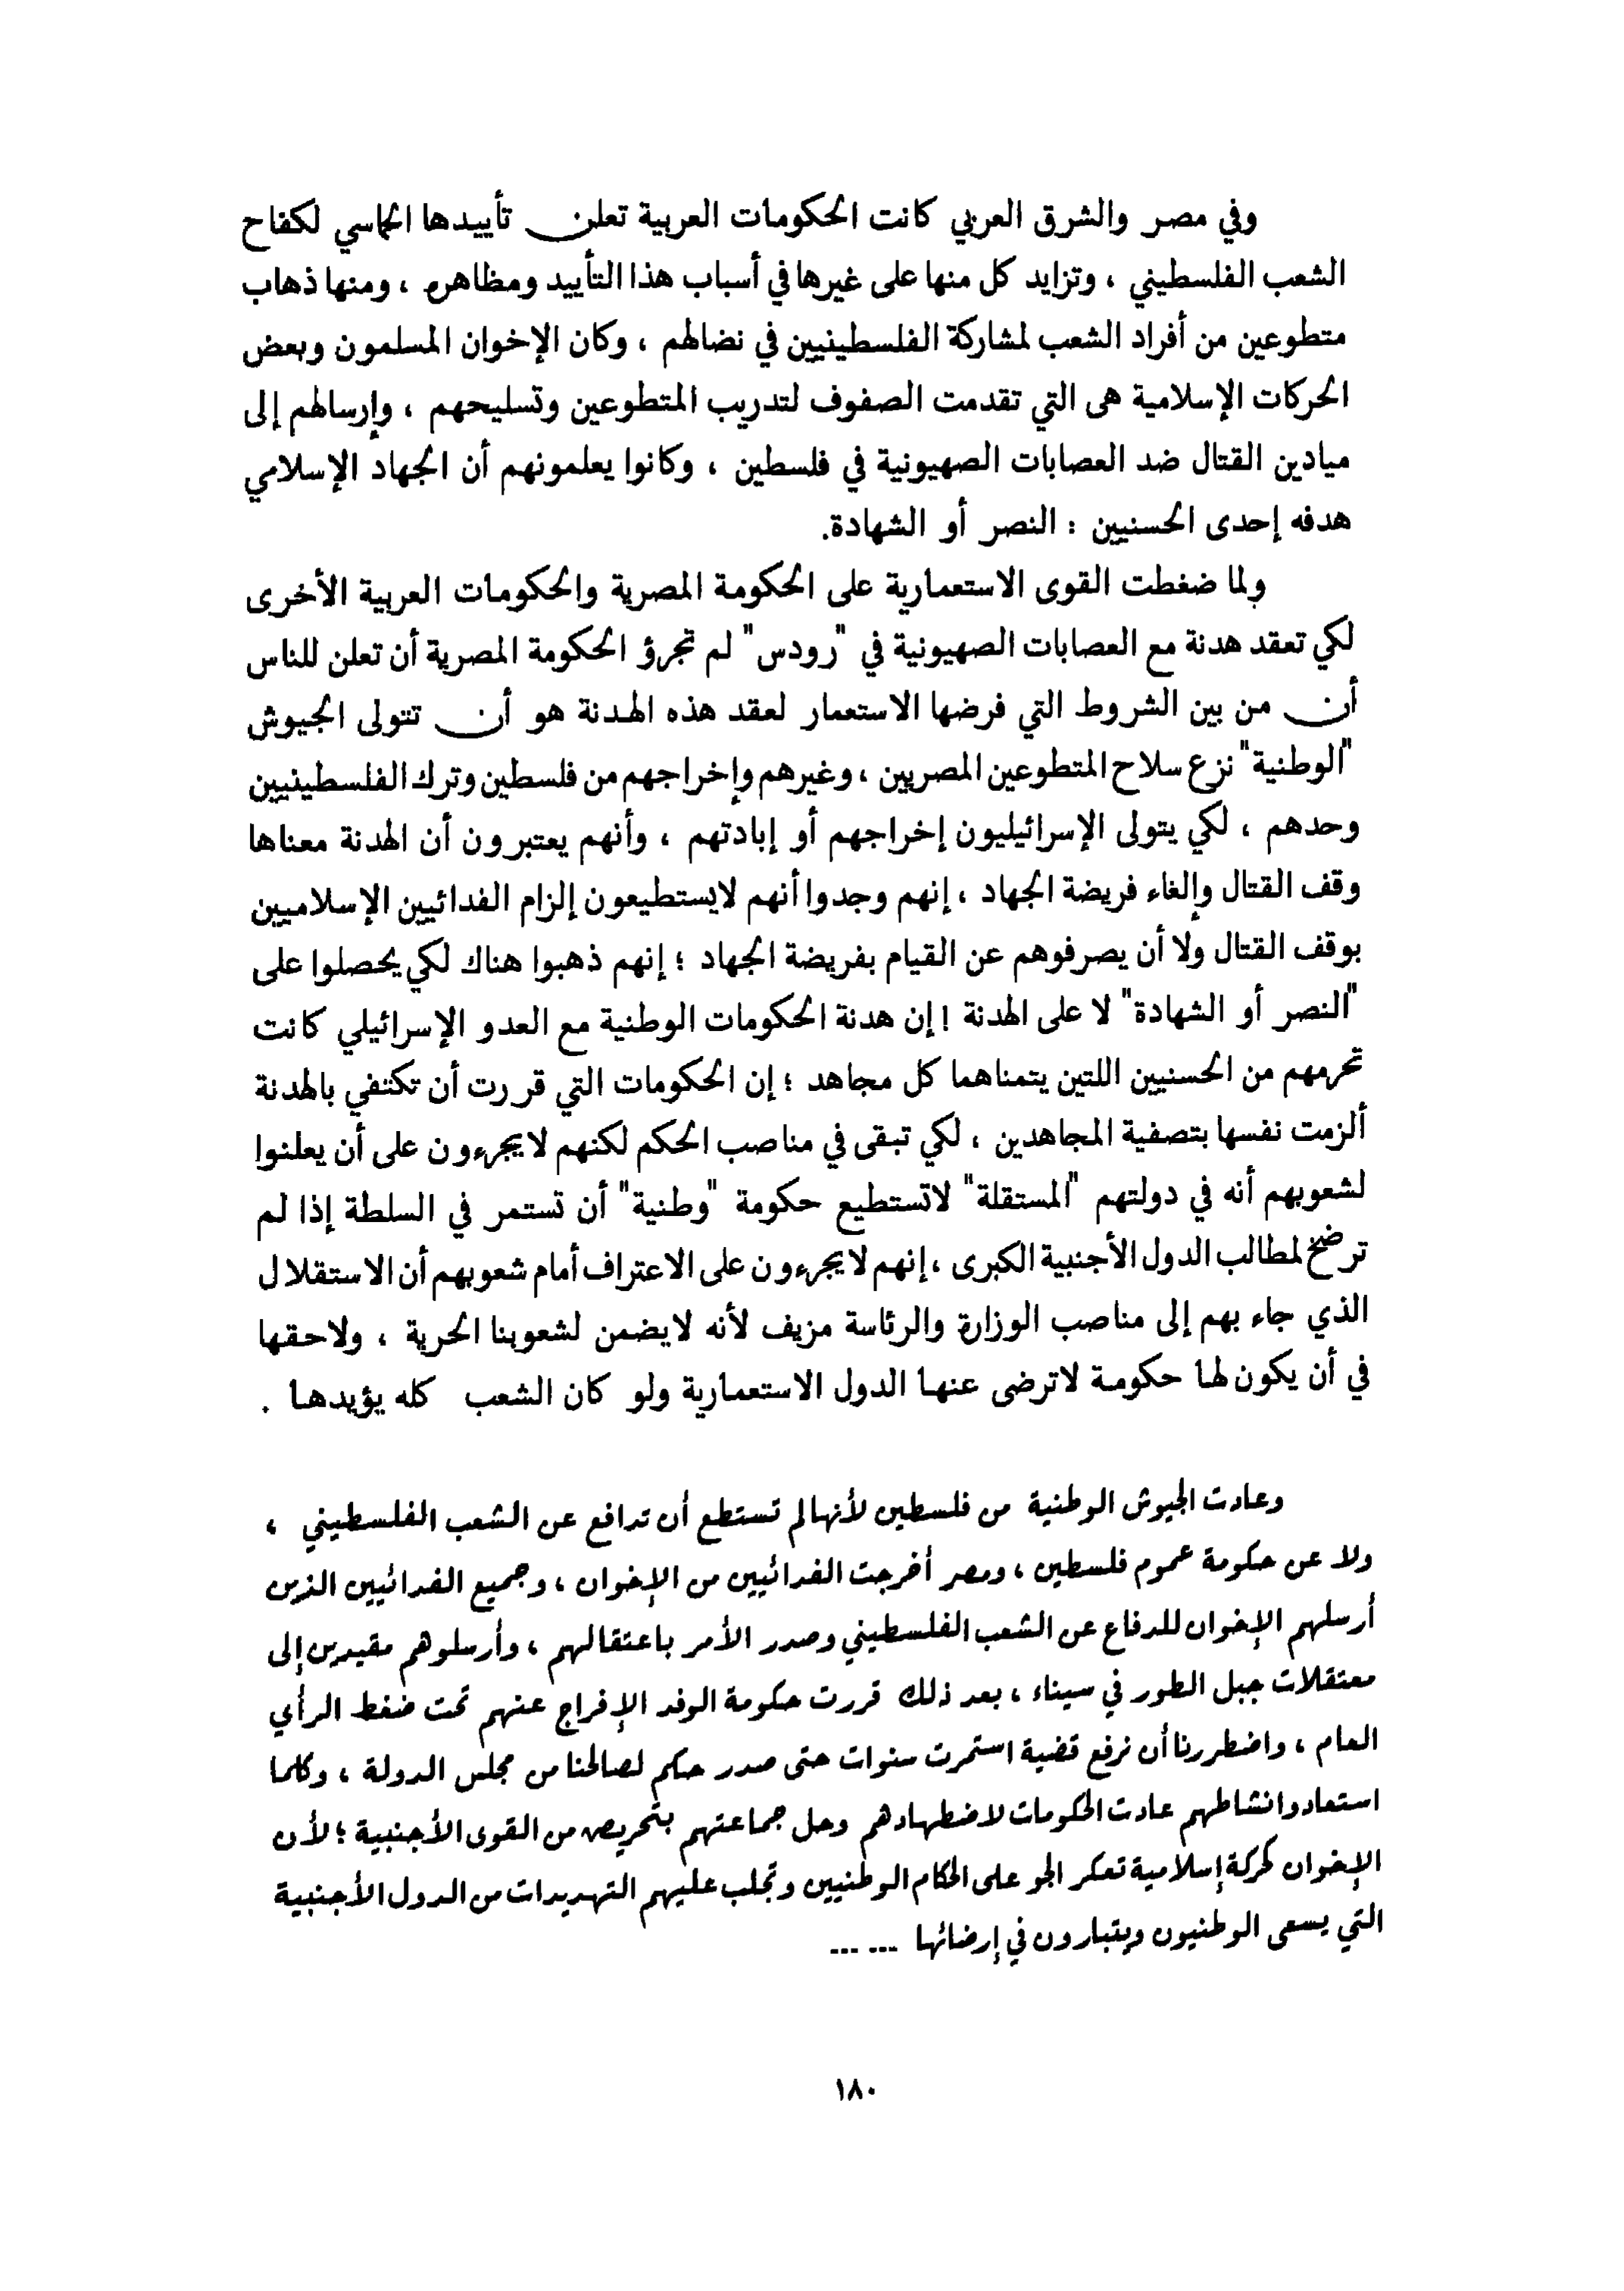 وفي مصر والشرق العربي كانت الحكومات العربية تعلن تأييدها الحماسي لكفاح
الشعب الفلسطيني ، وتزايد كل منها على غيرها في أسباب هذا التأييد ومظاهره ، ومنها ذهاب
متطوعين من أفراد الشعب لمشاركة الفلسطينيين في نضالهم ، وكان الإخوان المسلمون وبعض
الحركات الإسلامية هى التي تقدمت الصفوف لتدريب المتطوعين وتسليحهم ، وإرسالهم إلى
ميادين القتال ضد العصابات الصهيونية في فلسطين ، وكانوا يعلمونهم أن الجهاد الإسلامي
هدفه إحدى الحسنيين : النصر أو الشهادة.
ولما ضغطت القوى الاستعمارية على الحكومة المصرية والحكومات العربية الأخرى
لكي تعقد هدنة مع العصابات الصهيونية في "رودس" لم تجرؤ الحكومة المصرية أن تعلن للناس
أن من بين الشروط التي فرضها الاستعمار لعقد هذه الهدنة هو أن تتولى الجيوش
"الوطنية" نزع سلاح المتطوعين المصريين ، وغيرهم وإخراجهم من فلسطين وترك الفلسطينيين
وحدهم ، لكي يتولى الإسرائيليون إخراجهم أو إبادتهم ، وأنهم يعتبرون أن الهدنة معناها
وقف القتال وإلغاء فريضة الجهاد ، إنهم وجدوا أنهم لايستطيعون إلزام الفدائيين الإسلاميين
بوقف القتال ولا أن يصرفوهم عن القيام بفريضة الجهاد ؛ إنهم ذهبوا هناك لكي يحصلوا على
"النصر أو الشهادة" لا على الهدنة ! إن هدنة الحكومات الوطنية مع العدو الإسرائيلي كانت
تحرمهم من الحسنيين اللتين يتمناهما كل مجاهد ؛ إن الحكومات التي قررت أن تكتفي بالهدنة
ألزمت نفسها بتصفية المجاهدين ، لكي تبقى في مناصب الحكم لكنهم لايجرءون على أن يعلنوا
لشعوبهم أنه في دولتهم "المستقلة" لاتستطيع حكومة "وطنية" أن تستمر في السلطة إذا لم
ترضخ لمطالب الدول الأجنبية الكبرى ، إنهم لايجرءون على الاعتراف أمام شعوبهم أن الاستقلال
الذي جاء بهم إلى مناصب الوزارة والرئاسة مزيف لأنه لايضمن لشعوبنا الحرية ، ولاحقها
في أن يكون لها حكومة لاترضى عنها الدول الاستعمارية ولو كان الشعب كله يؤيدها .
وعادت الجيوش الوطنية من فلسطين لأنها لم تستطع أن تدافع عن الشعب الفلسطيني ،
ولا عن حكومة عموم فلسطين ، ومصر أخرجت الفدائيين من الإخوان ، وجميع الفدائيين الذين
أرسلهم الإخوان للدفاع عن الشعب الفلسطيني وصدر الأمر باعتقالهم ، وأرسلوهم مقيدين إلى
معتقلات جبل الطور في سيناء ، بعد ذلك قررت حكومة الوفد الإفراج عنهم تحت ضغط الرأي
العام ، واضطررنا أن نرفع قضية استمرت سنوات حتى صدر حكم لصالحنا من مجلس الدولة ، وكلما
استعادوا نشاطهم عادت الحكومات لاضطهادهم وحل جماعتهم بتحريض من القوى الأجنبية ؛ لأن
الإخوان كحركة إسلامية تعكر الجو على الحكام الوطنيين وتجلب عليهم التهديدات من الدول الأجنبية
التي يسعى الوطنيون ويتبارون في إرضائها ... ...
١٨٠